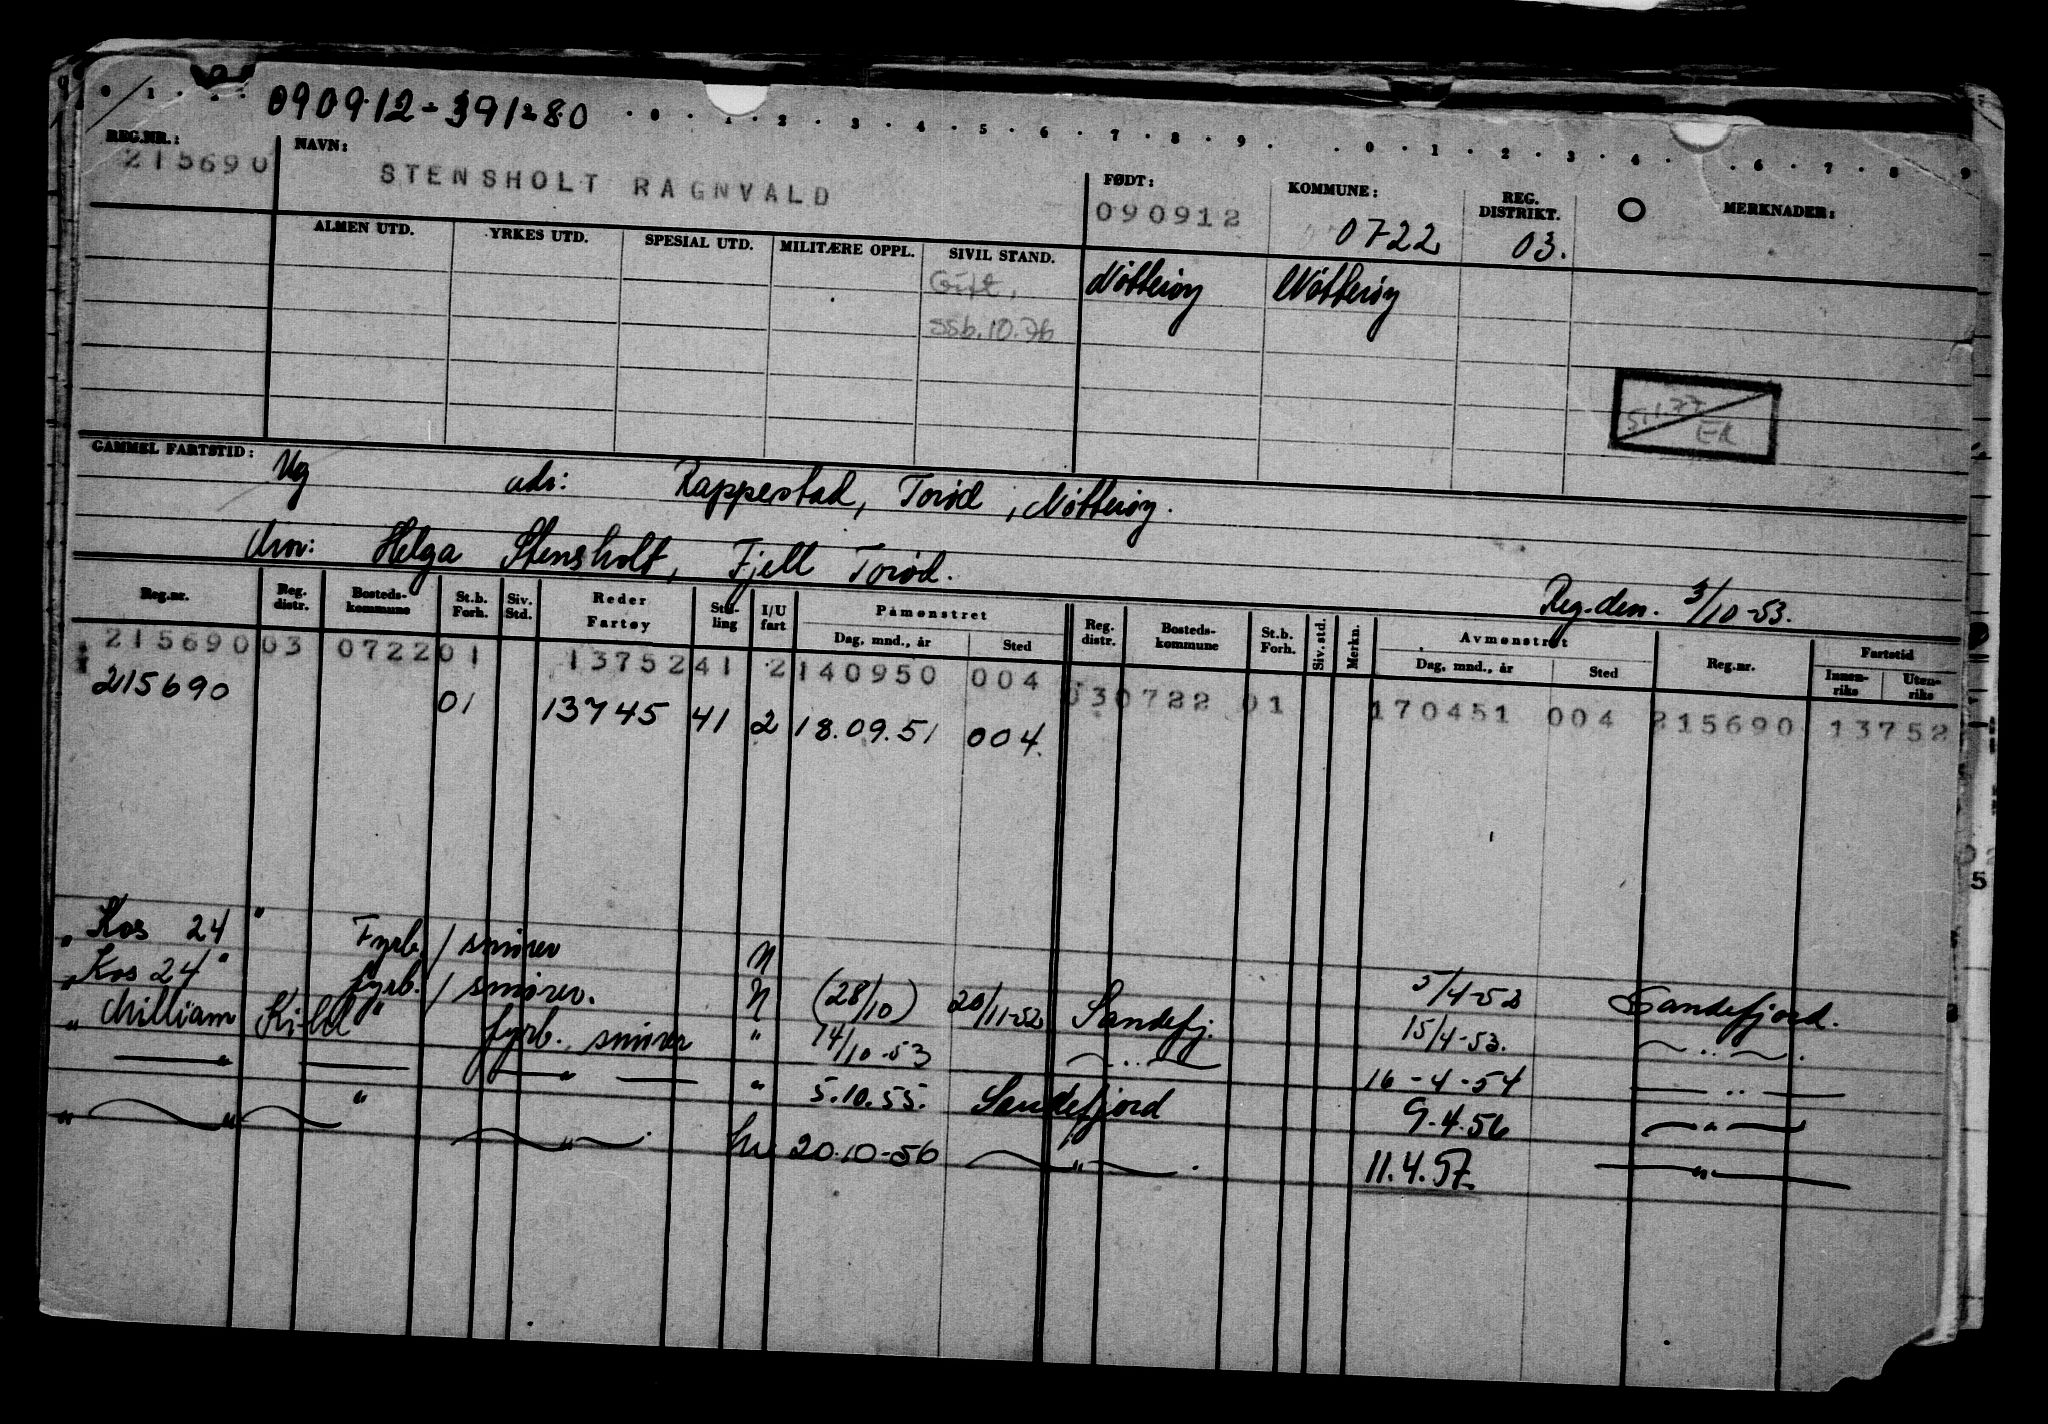 0 1 090912-39128.0 0 1 2 3 4 5 6 7 8 9 0 1 2 3 4 6 7 8 9
REG.NR.: NAVN: FØDT: KOMMUNE: REG. DISTRIKT. O MERKNADER:
215690 STENSHOLT RAGNVALD 090912 0722 03.
ALMEN UTD. YRKES UTD. SPESIAL UTD. MILITÆRE OPPL. SIVIL STAND.
Gift, Nötterøy Nötterøy
SSb.10.76
ER
GAMMEL FARTSTID:
Ug adr: Rappestad, Torød, Nötterøy.
Mor: Helga Stensholt, Fjell Torød.
Reg.den. 3/10-53.
Reg.nr. Reg. distr. Bosteds-kommune St.b. Forh. Siv. Std. Reder Fartøy Stil-ling I/U fart Påmønstret Dag, mnd., år Sted Reg. distr. Bosteds-kommune St.b. Forh. Siv. std. Merkn. Avmønstret Dag, mnd., år Sted Reg.nr. Fartstid Innen-riks Uten-riks
215690 03 0722 01 13752 41 2 140950 004 030722 01 170451 004 215690 13752
215690 01 13745 41 2 18.09.51 004.
"Kos 24" Fyrb./smører U 5/4-52 Sandefjord.
"Kos 24" fyrb./smører. U (28/10) 20/11-52 Sandefj. 15/4-53. — " — .
"William Kihl" fyrb. smører " 14/10-53 — " — 16-4-54 — " —
— " — " — " — " 5.10.55. Sandefjord 9.4.56 — " —
" — " — — " — . 20.10-56 — " — . 11.4.57. — " —